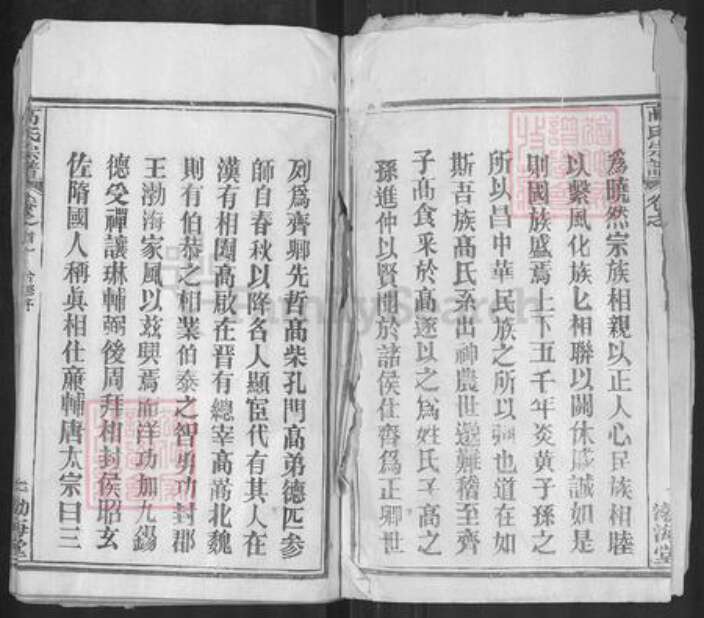 高氏宗譜
為曉然宗族相親以正人心民族相睦
以繫風化族必相聯以關休戚誠如是
則國族盛焉上下五千年炎黃子孫之
所以昌中華民族之所以興也道在如
斯吾族高氏系出神農世遠難稽至齊
子高食采於高遂以之為姓氏子高之
孫進仲以賢聞於諸侯仕齊為正卿世
渤海堂
列為齊卿先哲高柴孔門高弟德匹參
師自春秋以降名人顯宦代有其人在
漢有相國高啟在晋有總宰高嵩北魏
則有伯恭之相業伯泰之智勇功封郡
王渤海家風以茲興焉而洋功加九錫
德受禪讓琳輔弼後周拜相封侯昭玄
佐隋國人稱真相仕廉輔唐太宗曰三
高氏宗譜
渤海堂
FamilySearch